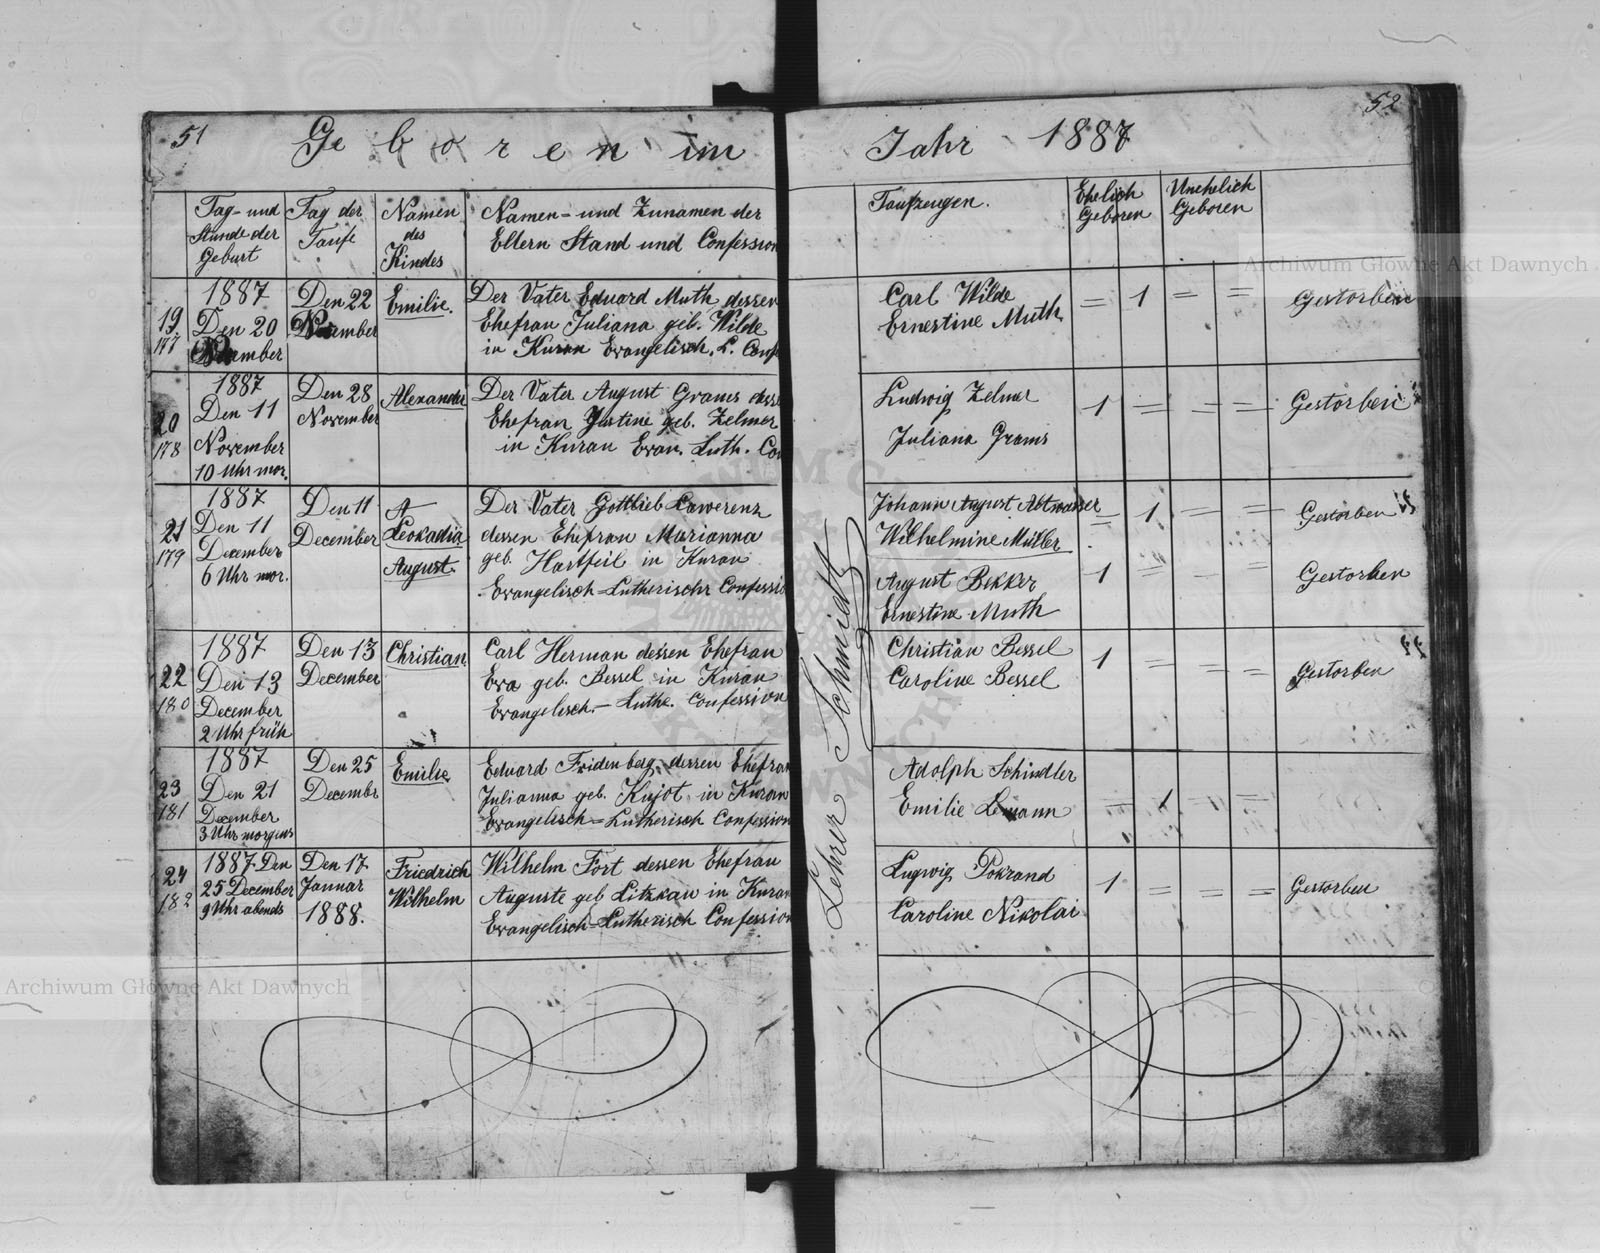 51
Geboren im
Tag- und
Stunde der
Geburt
Tag der
Taufe
Namen
des
Kindes
Namen- und Zunamen der
Eltern Stand und Confession
19.
177
1887
Den 20
November
Den 22
November
Emilie.
Der Vater Eduard Muth dessen
Ehefrau Juliana geb. Wilde
in Kuran Evangelisch. L. Conf
20
178
1887
Den 11
November
10 Uhr mor.
Den 28
November
Alexander
Der Vater August Grams dess
Ehefrau Justine geb. Zelmer
in Kuran Evan. Luth. Con
21
179
1887
Den 11
December
6 Uhr mor.
Den 11
December
Leokadia
August.
Der Vater Gottlieb Lawerenz
dessen Ehefrau Marianna
geb. Hartfeil in Kuran
Evangelisch-Lutherischr Confessio
22
180
1887
Den 13
December
2 Uhr früh
Den 13
December
Christian
Carl Herman dessen Ehefrau
Eva geb. Bessel in Kuran
Evangelisch.- Luthe. Confession
23
181
1887
Den 21
December
3 Uhr morgens
Den 25
Decembr
Emilie
Eduard Fridenberg, dessen Ehefrau
Julianna geb. Kujot in Kuran
Evangelisch-Lutherisch Confession
24
182
1887 Den
25 December
9 Uhr abends
Den 17
Januar
1888.
Friedrich
Wilhelm
Wilhelm Fort dessen Ehefrau
Auguste geb Litzkau in Kuran
Evangelisch-Lutherisch Confession
52
Jahr 1887
Taufzeugen.
Ehelich
Geboren
Unehelich
Geboren
Carl Wilde
Ernestine Muth
= 1 = =
Gestorben
Ludwig Zelmer
Juliana Grams
1 = = =
Gestorben
Johann August Abtwasser
Wilhelmine Müller
= 1 = =
Gestorben
August Bekker
Ernestine Muth
1 = = =
Gestorben
Christian Bessel
Caroline Bessel
1 = = =
Gestorben
Adolph Schindler
Emilie
= 1 = =
Ludwig Pokrand
Caroline Nikolai
1 = = =
Gestorben
Lehrer Schmidt
Archiwum Główne Akt Dawnych
Archiwum Główne Akt Dawnych